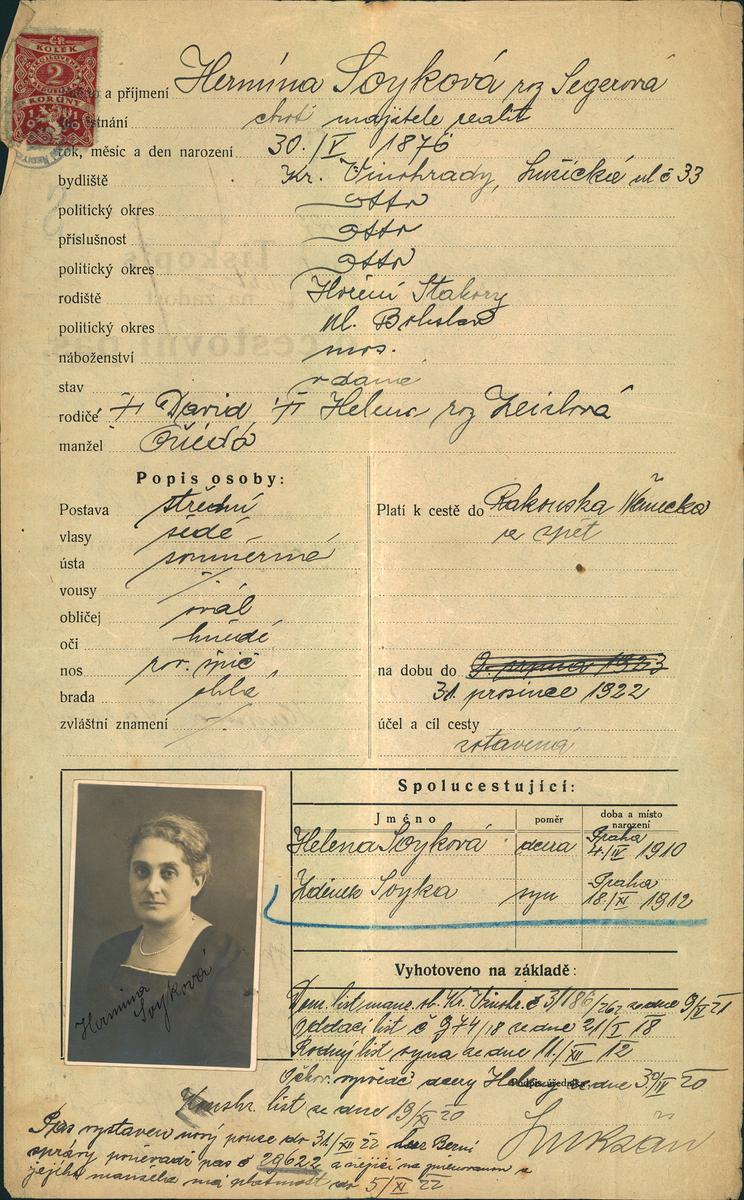 ČR.
KOLEK
2
KORUNY
1919
a příjmení Hermína Soyková roz Segerová
choť majitele realit
rok, měsíc a den narození 30./V. 1876
bydliště Kr. Vinohrady, Lužická ul č 33
politický okres otto
příslušnost otto
politický okres otto
rodiště Hoření Stakory
politický okres Ml. Boleslav
náboženství mos.
stav vdaná
rodiče † David † Helena roz Zeislová
manžel
Popis osoby:
Postava střední
vlasy šedé
ústa souměrné
vousy /
obličej ovál
oči hnědé
nos
brada oblá
zvláštní znamení /.
Platí k cestě do Rakouska Německa
a zpět
na dobu do 9. srpna 1923
31. prosince 1922
účel a cíl cesty
zotavená
Spolucestující:
Jméno poměr doba a místo narození
Helena Soyková dcera Praha 4./IV 1910
Zdenek Soyka syn Praha 18/XI 1912
Hermina Soyková
Vyhotoveno na základě:
Dom. list Kr. Vinohr. č 3/186/262 ze dne 9/V 21
Oddací list č 974/18 ze dne 21/I 18
Rodný list syna ze dne 11./XII 12
Očkov. dcery ze dne 30/IV 20
Podpis úředníka:
list ze dne 19/XI 20
Pas vystaven nový pouze do 31/XII 22 Berní
správy poněvadž pas č 29622 a
jejího manžela má platnost do 5/XI 22